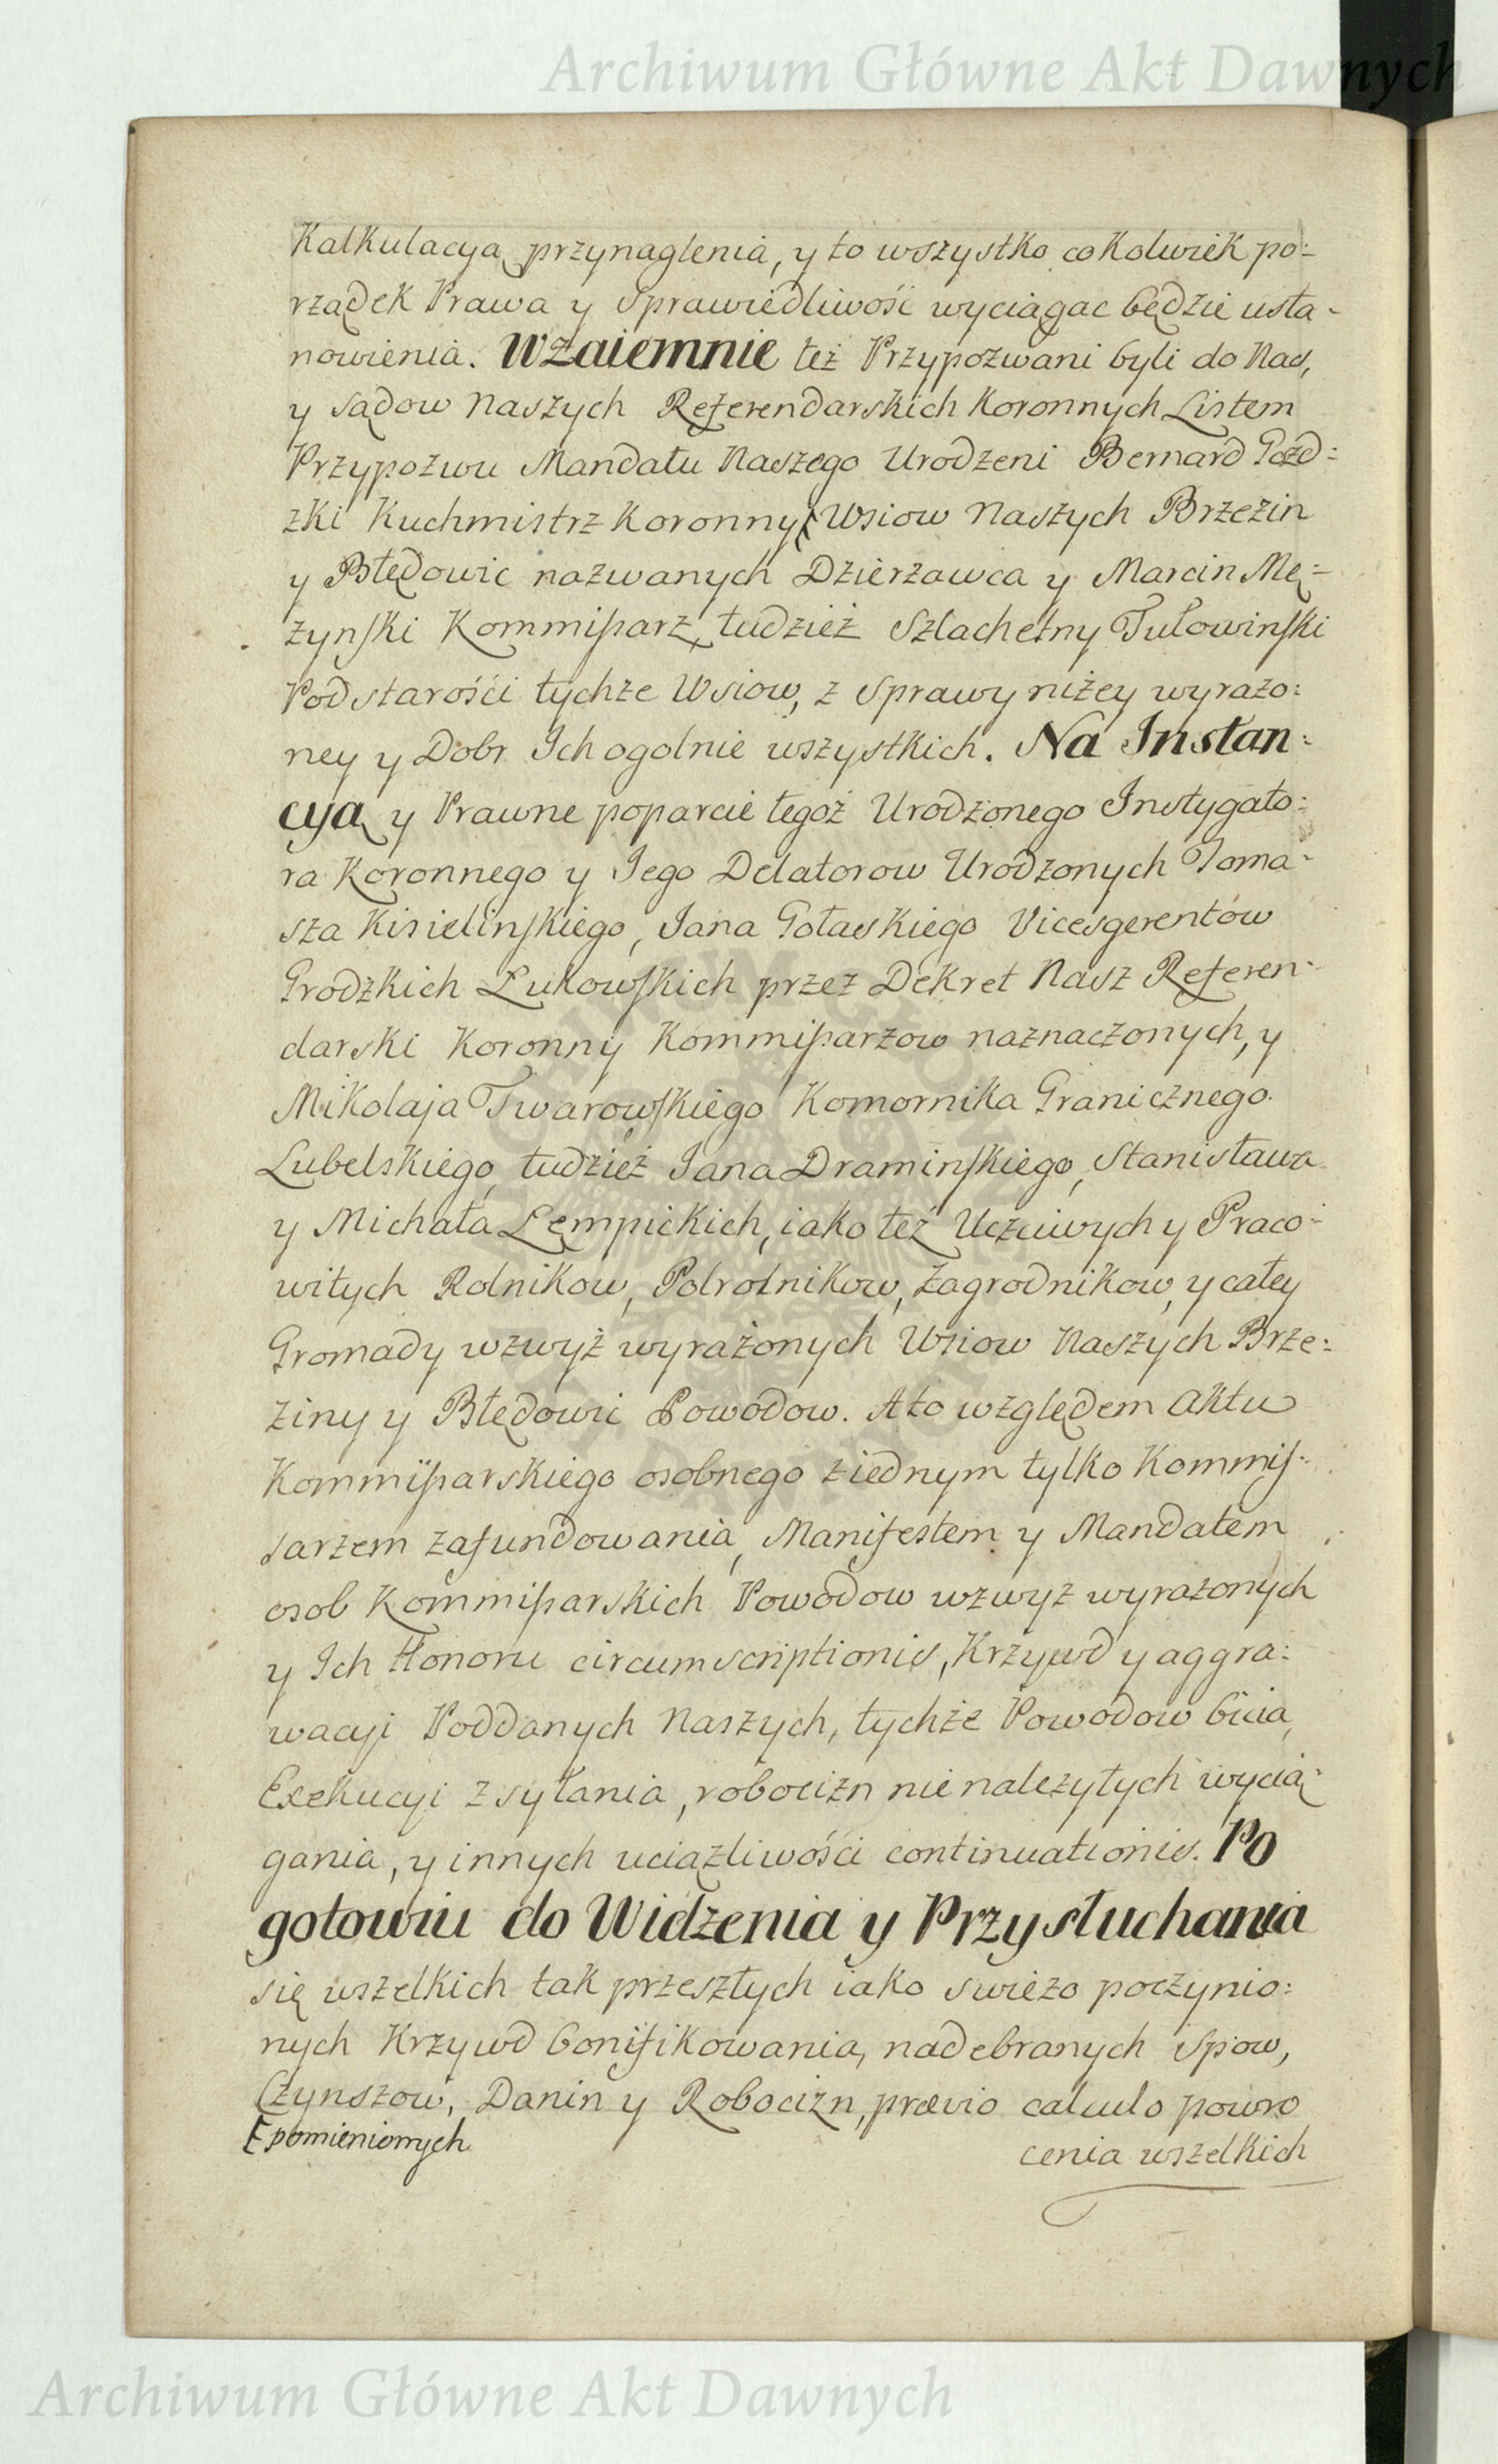 Archiwum Główne Akt Dawnych
Kalkulacyą przynaglenia, y to wszystko cokolwiek po:
rządek Prawa y Sprawiedliwość wyciągac będzie usta-
nowienia. Wzaiemnie też Przypozwani byli do Nas,
y Sądow Naszych Referendarskich Koronnych Listem
Przypozwu Mandatu Naszego Urodzeni Bernard Gozd:
zki Kuchmistrz Koronny [ Wsiow Naszych Brzezin
y Błędowic nazwanych Dzierzawca y Marcin Mę:
zynski Kommissarz, tudzież Szlachetny Tułowinski
Podstarości tychze Wsiow, z Sprawy niżey wyrazo:
ney y Dobr Ich ogolnie wszystkich. Na Instan:
cyą y Prawne poparcie tegoż Urodzonego Instygato:
ra Koronnego y Jego Delatorow Urodzonych Toma:
sza Kisielinskiego, Jana Gołaskiego Vicesgerentow
Grodzkich Łukowskich przez Dekret Nasz Referen:
darski Koronny Kommissarzow naznaczonych, y
Mikolaja Twarowskiego Komornika Granicznego
Lubelskiego, tudzież Jana Draminskiego, Stanisława
y Michała Łempickich, iako też Uczciwych y Praco:
witych Rolnikow, Polrolnikow, Zagrodnikow, y całey
Gromady wzwyż wyrażonych Wsiow Naszych Brze:
ziny y Błędowic Powodow. A to względem Aktu
Kommissarskiego osobnego z iednym tylko Kommis:
sarzem zafundowania, Manifestem y Mandatem
osob Kommissarskich Powodow wzwyz wyrazonych
y Ich Honoru circumscriptionis, Krzywd y aggra:
wacyi Poddanych Naszych, tychże Powodow bicia,
Exekucyi zsyłania, robocizn nienalezytych wycią:
gania, y innych uciązliwości continuationis. Po
gotowiu do Widzenia y Przysłuchania
się wszelkich tak przeszłych iako swiezo poczynio:
nych Krzywd bonifikowania, nadebranych Spow,
Czynszow, Danin y Robocizn, prævio calculo powro
[ pomienionych
cenia wszelkich
Archiwum Główne Akt Dawnych